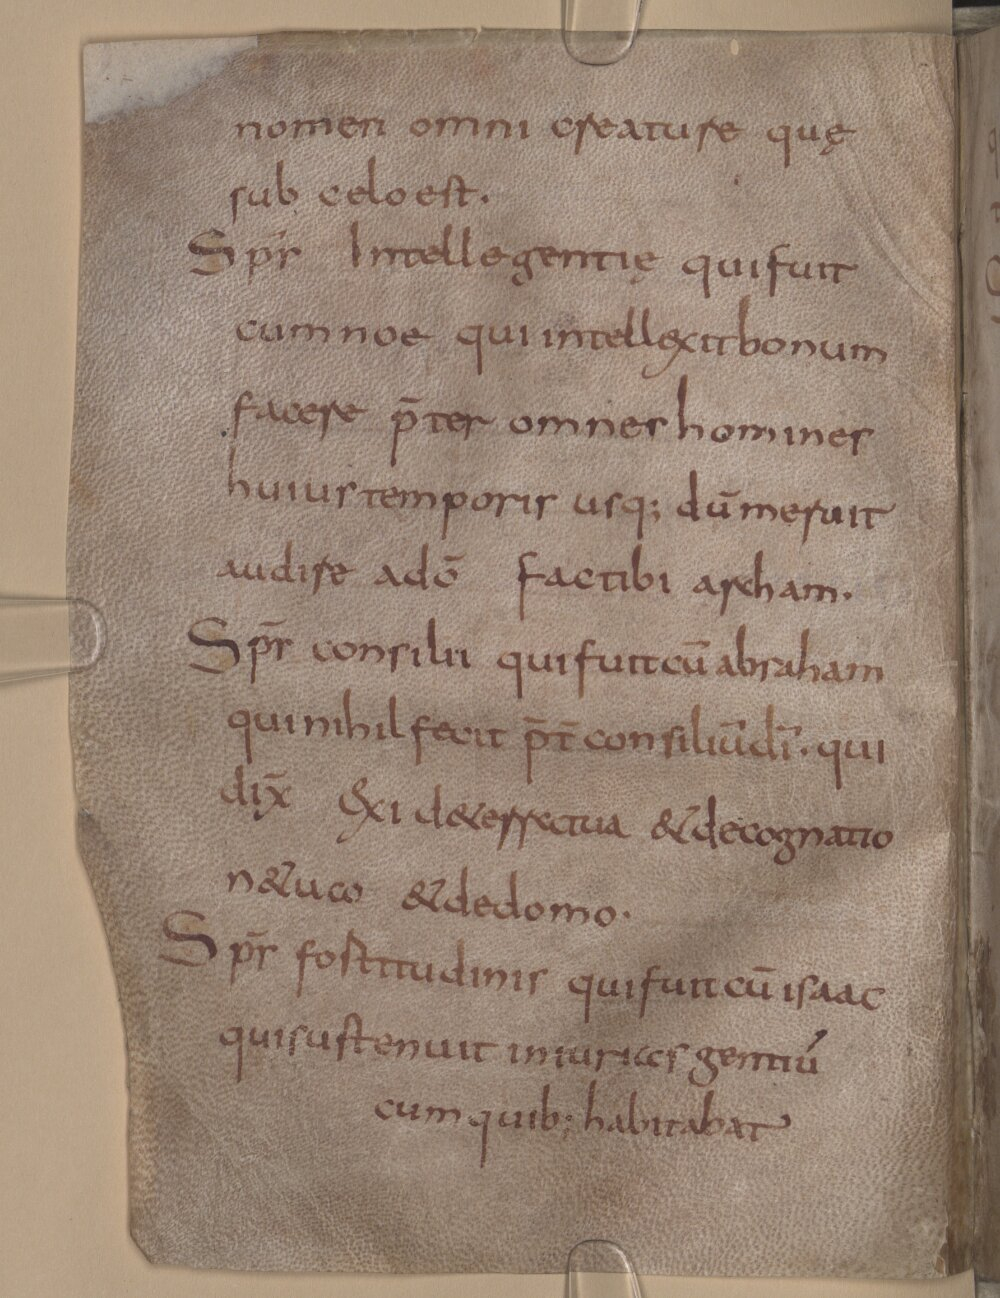 nomen omni creature quę
sub celo est.
Sp̄s Intellegentię qui fuit
cum noe qui intellexit bonum
facere p̄ter omnes homines
huius temporis usq; dū meruit
audire a dō fac tibi archam.
Sp̄s consilii qui fuit cū abraham
qui nihil fecit p̄t̄ consiliū dī. qui
dix̄ Exi de terra tua & de cognatio
n& ua & de domo.
Sp̄s fortitudinis qui fuit cū isaac
qui sustenuit iniurias gentiū
cum quib; habitabat